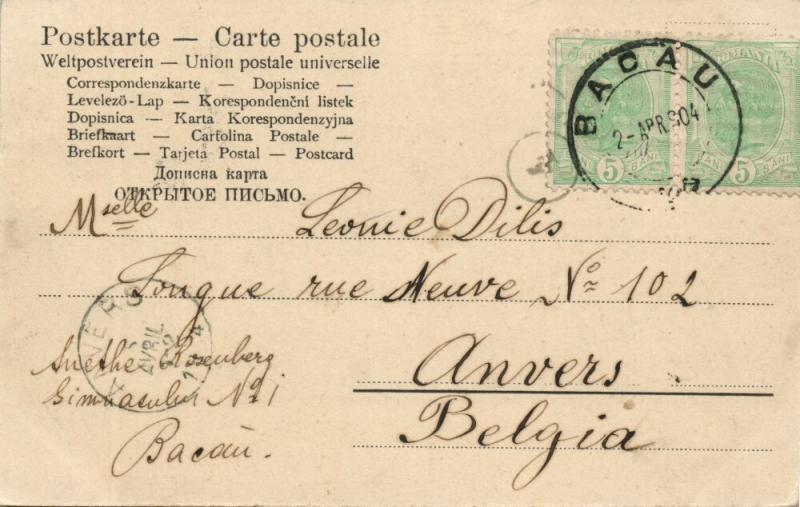 Postkarte — Carte postale
Weltpostverein — Union postale universelle
Correspondenzkarte — Dopisnice —
Levelezö-Lap — Korespondenční listek
Dopisnica — Karta Korespondenzyjna
Briefkaart — Cartolina Postale —
Brefkort — Tarjeta Postal — Postcard
Дописна карта
ОТКРЫТОЕ ПИСЬМО.
BACAU
2-APR 904
5 BANI
5 BANI
Mselle Leonie Dilis
Longue rue Neuve No 102
Anvers
Belgia
ANVERS
AVRIL
Rosenberg
No 1
Bacău.